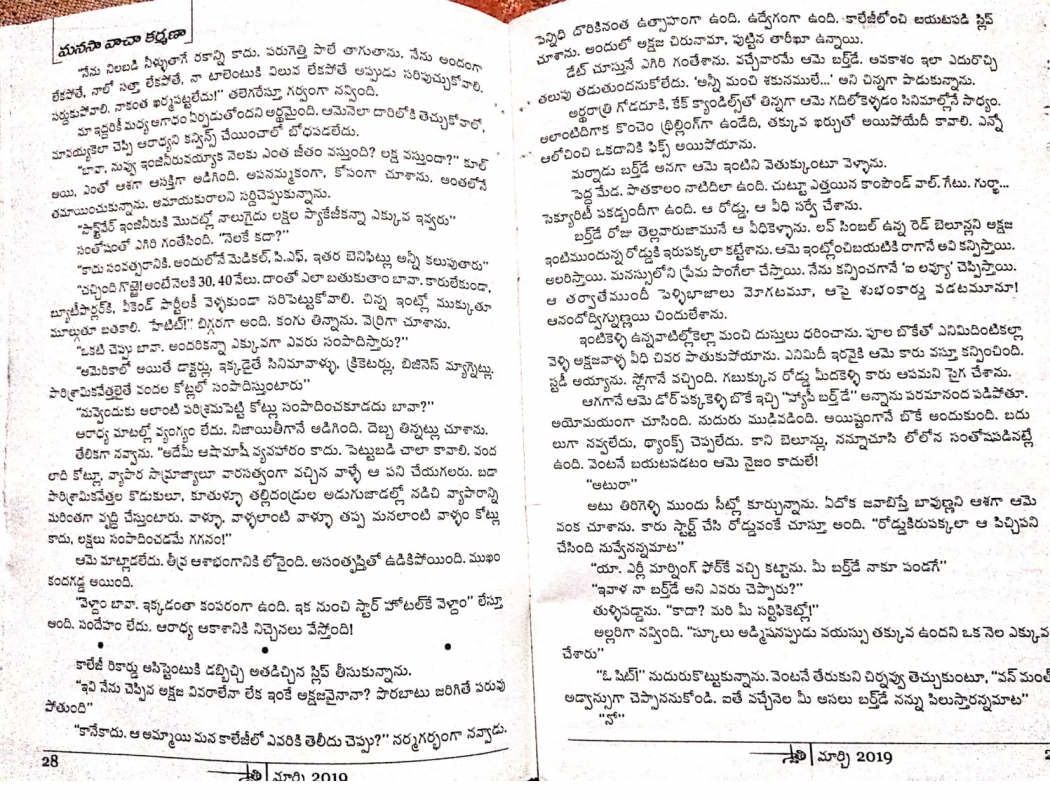 మనసా వాచా కర్మణా
"నేను నిలబడి నీళ్ళుతాగే రకాన్ని కాదు. పరుగెత్తి పాలే తాగుతాను. నేను అందంగా
లేకపోతే, నాలో సత్తా లేకపోతే, నా టాలెంటుకి విలువ లేకపోతే అప్పుడు సరిపుచ్చుకోవాలి.
సర్దుకుపోవాలి. నాకంత ఖర్మపట్టలేదు!" తలెగరేస్తూ గర్వంగా నవ్వింది.
మా ఇద్దరికీ మధ్య అగాధం ఏర్పడుతోందని అర్థమైంది. ఆమెనెలా దారిలోకి తెచ్చుకోవాలో,
మావయ్యకెలా చెప్పి ఆరాధ్యని కన్విన్స్ చేయించాలో బోధపడలేదు.
"బావా, నువ్వు ఇంజినీరువయ్యాక నెలకు ఎంత జీతం వస్తుంది? లక్ష వస్తుందా?" కూల్
అయి, ఎంతో ఆశగా ఆసక్తిగా అడిగింది. అపనమ్మకంగా, కోపంగా చూశాను. అంతలోనే
తమాయించుకున్నాను. అమాయకురాలని సర్దిచెప్పుకున్నాను.
"సాఫ్ట్‌వేర్ ఇంజినీరుకి మొదట్లో నాలుగైదు లక్షల ప్యాకేజీకన్నా ఎక్కువ ఇవ్వరు"
సంతోషంతో ఎగిరి గంతేసింది. "నెలకే కదా?"
"కాదు సంవత్సరానికి. అందులోనే మెడికల్, పి.ఎఫ్, ఇతర బెనిఫిట్లు అన్నీ కలుపుతారు"
"వచ్చింది గొడ్డె! అంటే నెలకి 30, 40 వేలు. దాంతో ఎలా బతుకుతాం బావా. కారులేకుండా,
బ్యూటీపార్లర్‌కి, వీకెండ్ పార్టీలకీ వెళ్ళకుండా సరిపెట్టుకోవాలి. చిన్న ఇంట్లో ముక్కుతూ
మూల్గుతూ బతకాలి. హేటిట్!" బిగ్గరగా అంది. కంగు తిన్నాను. వెర్రిగా చూశాను.
"ఒకటి చెప్పు బావా. అందరికన్నా ఎక్కువగా ఎవరు సంపాదిస్తారు?"
"అమెరికాలో అయితే డాక్టర్లు, ఇక్కడైతే సినిమావాళ్ళు, క్రికెటర్లు, బిజినెస్ మ్యాగ్నెట్లు.
పారిశ్రామికవేత్తలైతే వందల కోట్లలో సంపాదిస్తుంటారు"
"నువ్వెందుకు అలాంటి పరిశ్రమపెట్టి కోట్లు సంపాదించకూడదు బావా?"
ఆరాధ్య మాటల్లో వ్యంగ్యం లేదు. నిజాయితీగానే అడిగింది. దెబ్బ తిన్నట్లు చూశాను.
తేలికగా నవ్వాను. "అదేమీ ఆషామాషీ వ్యవహారం కాదు. పెట్టుబడి చాలా కావాలి. వంద
లాది కోట్లూ, వ్యాపార సామ్రాజ్యాలూ వారసత్వంగా వచ్చిన వాళ్ళే ఆ పని చేయగలరు. బడా
పారిశ్రామికవేత్తల కొడుకులూ, కూతుళ్ళూ తల్లిదండ్రుల అడుగుజాడల్లో నడిచి వ్యాపారాన్ని
మరింతగా వృద్ధి చేస్తుంటారు. వాళ్ళూ, వాళ్ళలాంటి వాళ్ళూ తప్ప మనలాంటి వాళ్ళం కోట్లు
కాదు, లక్షలు సంపాదించడమే గగనం!"
ఆమె మాట్లాడలేదు. తీవ్ర ఆశాభంగానికి లోనైంది. అసంతృప్తితో ఉడికిపోయింది. ముఖం
కందగడ్డ అయింది.
"వెళ్దాం బావా. ఇక్కడంతా కంపరంగా ఉంది. ఇక నుంచి స్టార్ హోటల్‌కే వెళ్దాం" లేస్తూ
అంది. సందేహం లేదు. ఆరాధ్య ఆకాశానికి నిచ్చెనలు వేస్తోంది!
• • •
కాలేజీ రికార్డు అసిస్టెంటుకి డబ్బిచ్చి అతడిచ్చిన స్లిప్ తీసుకున్నాను.
"ఇవి నేను చెప్పిన అక్షజ వివరాలేనా లేక ఇంకే అక్షజవైనానా? పొరబాటు జరిగితే పరువు
పోతుంది"
"కానేకాదు. ఆ అమ్మాయి మన కాలేజీలో ఎవరికి తెలీదు చెప్పు?" నర్మగర్భంగా నవ్వాడు.
28
స్వాతి మార్చి 2019
పెన్నిధి దొరికినంత ఉత్సాహంగా ఉంది. ఉద్వేగంగా ఉంది. కాలేజీలోంచి బయటపడి స్లిప్
చూశాను. అందులో అక్షజ చిరునామా, పుట్టిన తారీఖూ ఉన్నాయి.
డేట్ చూస్తునే ఎగిరి గంతేశాను. వచ్చేవారమే ఆమె బర్త్‌డే. అవకాశం ఇలా ఎదురొచ్చి
తలుపు తడుతుందనుకోలేదు. 'అన్నీ మంచి శకునములే...' అని చిన్నగా పాడుకున్నాను.
అర్థరాత్రి గోడదూకి, కేక్ క్యాండిల్స్‌తో తిన్నగా ఆమె గదిలోకెళ్ళడం సినిమాల్లోనే సాధ్యం.
అలాంటిదిగాక కొంచెం థ్రిల్లింగ్‌గా ఉండేది, తక్కువ ఖర్చుతో అయిపోయేదీ కావాలి. ఎన్నో
ఆలోచించి ఒకదానికి ఫిక్స్ అయిపోయాను.
మర్నాడు బర్త్‌డే అనగా ఆమె ఇంటిని వెతుక్కుంటూ వెళ్ళాను.
పెద్ద మేడ. పాతకాలం నాటిదిలా ఉంది. చుట్టూ ఎత్తయిన కాంపౌండ్ వాల్. గేటు. గుర్ఖా...
సెక్యూరిటీ పకడ్బందీగా ఉంది. ఆ రోడ్డు, ఆ వీధి సర్వే చేశాను.
బర్త్‌డే రోజు తెల్లవారుజామునే ఆ వీధికెళ్ళాను. లవ్ సింబల్ ఉన్న రెడ్ బెలూన్లని అక్షజ
ఇంటిముందున్న రోడ్డుకి ఇరుపక్కలా కట్టేశాను. ఆమె ఇంట్లోంచిబయటికి రాగానే అవి కన్పిస్తాయి.
అలరిస్తాయి. మనస్సులోని ప్రేమ పొంగేలా చేస్తాయి. నేను కన్పించగానే 'ఐ లవ్యూ' చెప్పిస్తాయి.
ఆ తర్వాతేముంది పెళ్ళిబాజాలు మోగటమూ, ఆపై శుభంకార్డు పడటమూనూ!
ఆనందోద్విగ్నుణ్ణయి చిందులేశాను.
ఇంటికెళ్ళి ఉన్నవాటిల్లోకెల్లా మంచి దుస్తులు ధరించాను. పూల బొకేతో ఎనిమిదింటికల్లా
వెళ్ళి అక్షజవాళ్ళ వీధి చివర పాతుకుపోయాను. ఎనిమిదీ ఇరవైకి ఆమె కారు వస్తూ కన్పించింది.
స్టడీ అయ్యాను. స్లోగానే వచ్చింది. గబుక్కున రోడ్డు మీదకెళ్ళి కారు ఆపమని సైగ చేశాను.
ఆగగానే ఆమె డోర్ పక్కకెళ్ళి బొకే ఇచ్చి "హ్యాపీ బర్త్‌డే" అన్నాను పరమానంద పడిపోతూ.
అయోమయంగా చూసింది. నుదురు ముడివడింది. అయిష్టంగానే బొకే అందుకుంది. బదు
లుగా నవ్వలేదు, థ్యాంక్స్ చెప్పలేదు. కాని బెలూన్లు, నన్నూచూసి లోలోన సంతోషపడినట్లే
ఉంది. వెంటనే బయటపడటం ఆమె నైజం కాదులే!
"అటురా"
అటు తిరిగెళ్ళి ముందు సీట్లో కూర్చున్నాను. ఏదోక జవాబిస్తే బావుణ్ణని ఆశగా ఆమె
వంక చూశాను. కారు స్టార్ట్ చేసి రోడ్డువంకే చూస్తూ అంది. "రోడ్డుకిరుపక్కలా ఆ పిచ్చిపని
చేసింది నువ్వేనన్నమాట"
"యా. ఎర్లీ మార్నింగ్ ఫోర్‌కే వచ్చి కట్టాను. మీ బర్త్‌డే నాకూ పండగే"
"ఇవాళ నా బర్త్‌డే అని ఎవరు చెప్పారు?"
తుళ్ళిపడ్డాను. "కాదా? మరి మీ సర్టిఫికెట్లో!"
అల్లరిగా నవ్వింది. "స్కూలు అడ్మిషనప్పుడు వయస్సు తక్కువ ఉందని ఒక నెల ఎక్కువ
చేశారు"
"ఓ షిట్!" నుదురుకొట్టుకున్నాను. వెంటనే తేరుకుని చిర్నవ్వు తెచ్చుకుంటూ, "వన్ మంత్
అడ్వాన్సుగా చెప్పాననుకోండి. ఐతే వచ్చేనెల మీ అసలు బర్త్‌డే నన్ను పిలుస్తారన్నమాట"
"నో"
స్వాతి మార్చి 2019